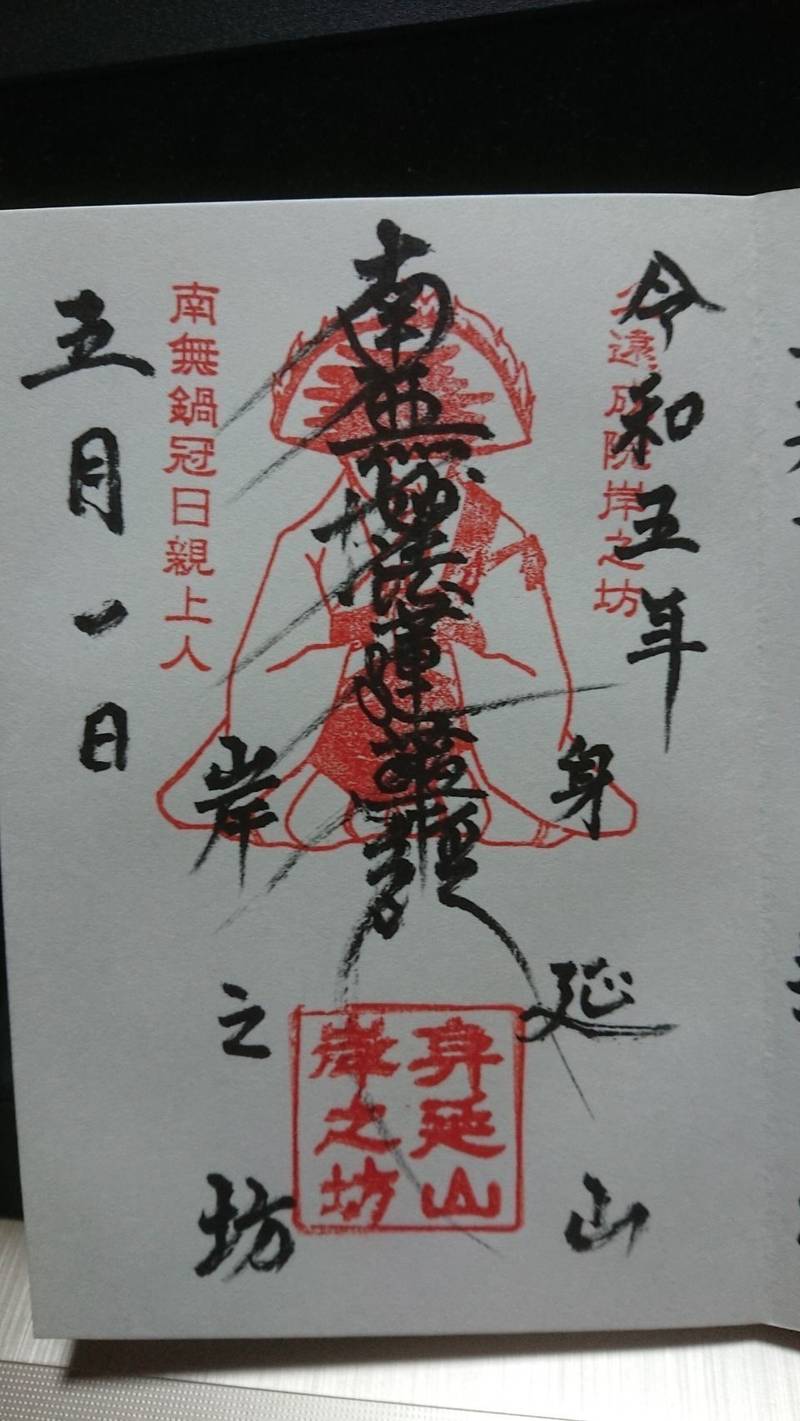 令和五年
遠成院岸之坊
身延山
南無妙法蓮華経
南無鍋冠日親上人
岸之坊
五月一日
身延山
岸之坊